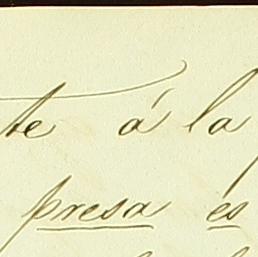 te á la
presa és